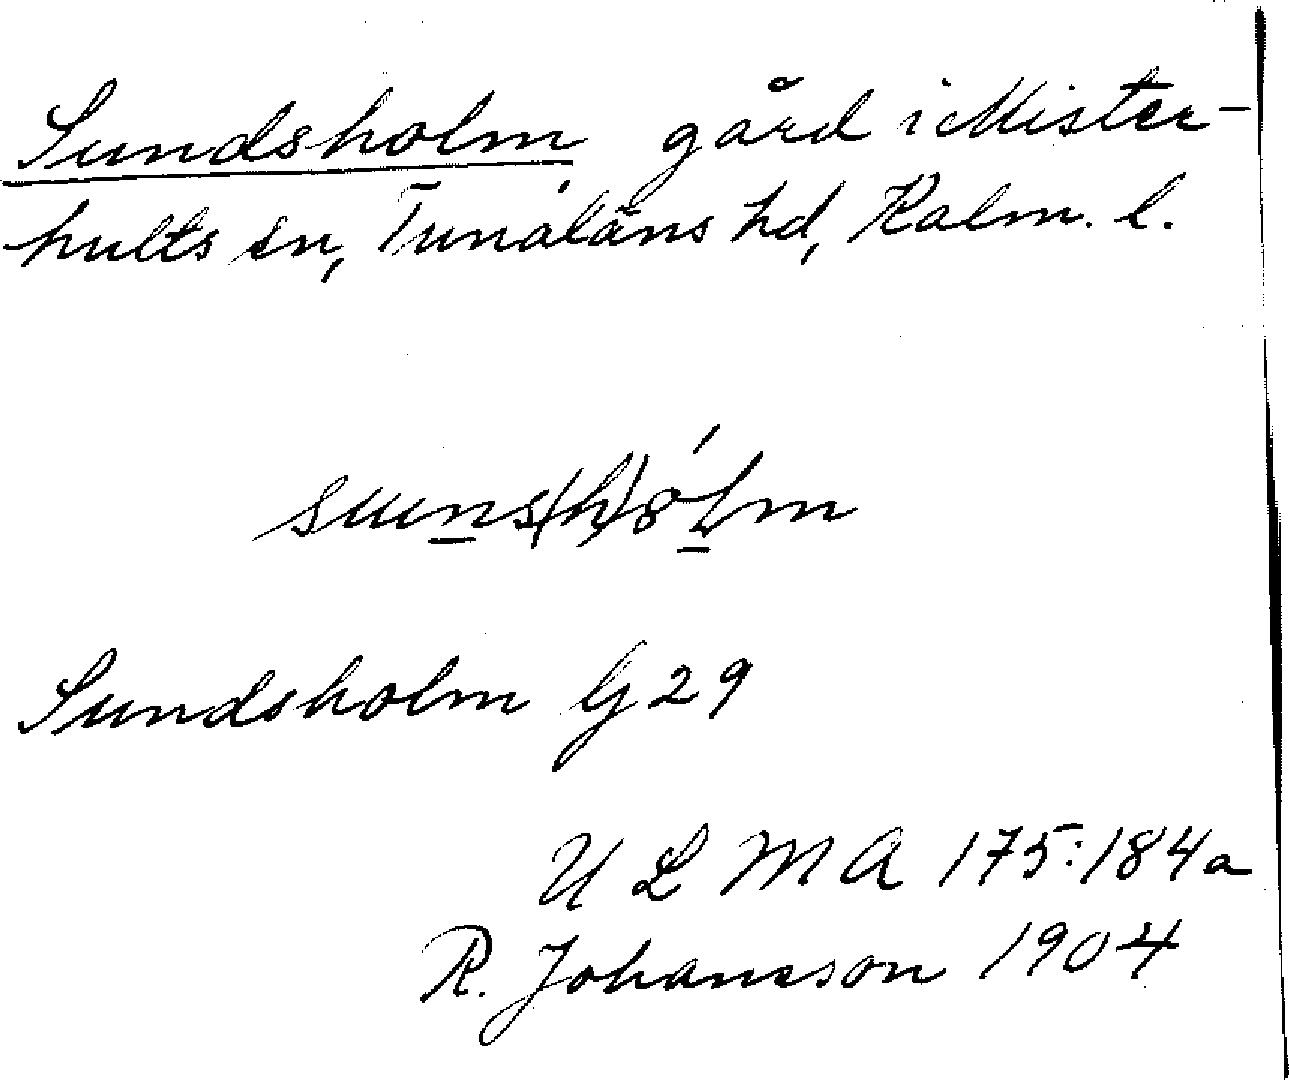 Sundsholm gård i Mister-
hults sn, Tunaläns hd, Kalm. l.
suuns(h)ólm
Sundsholm G 29
U L M A 175:184a
R. Johansson 1904